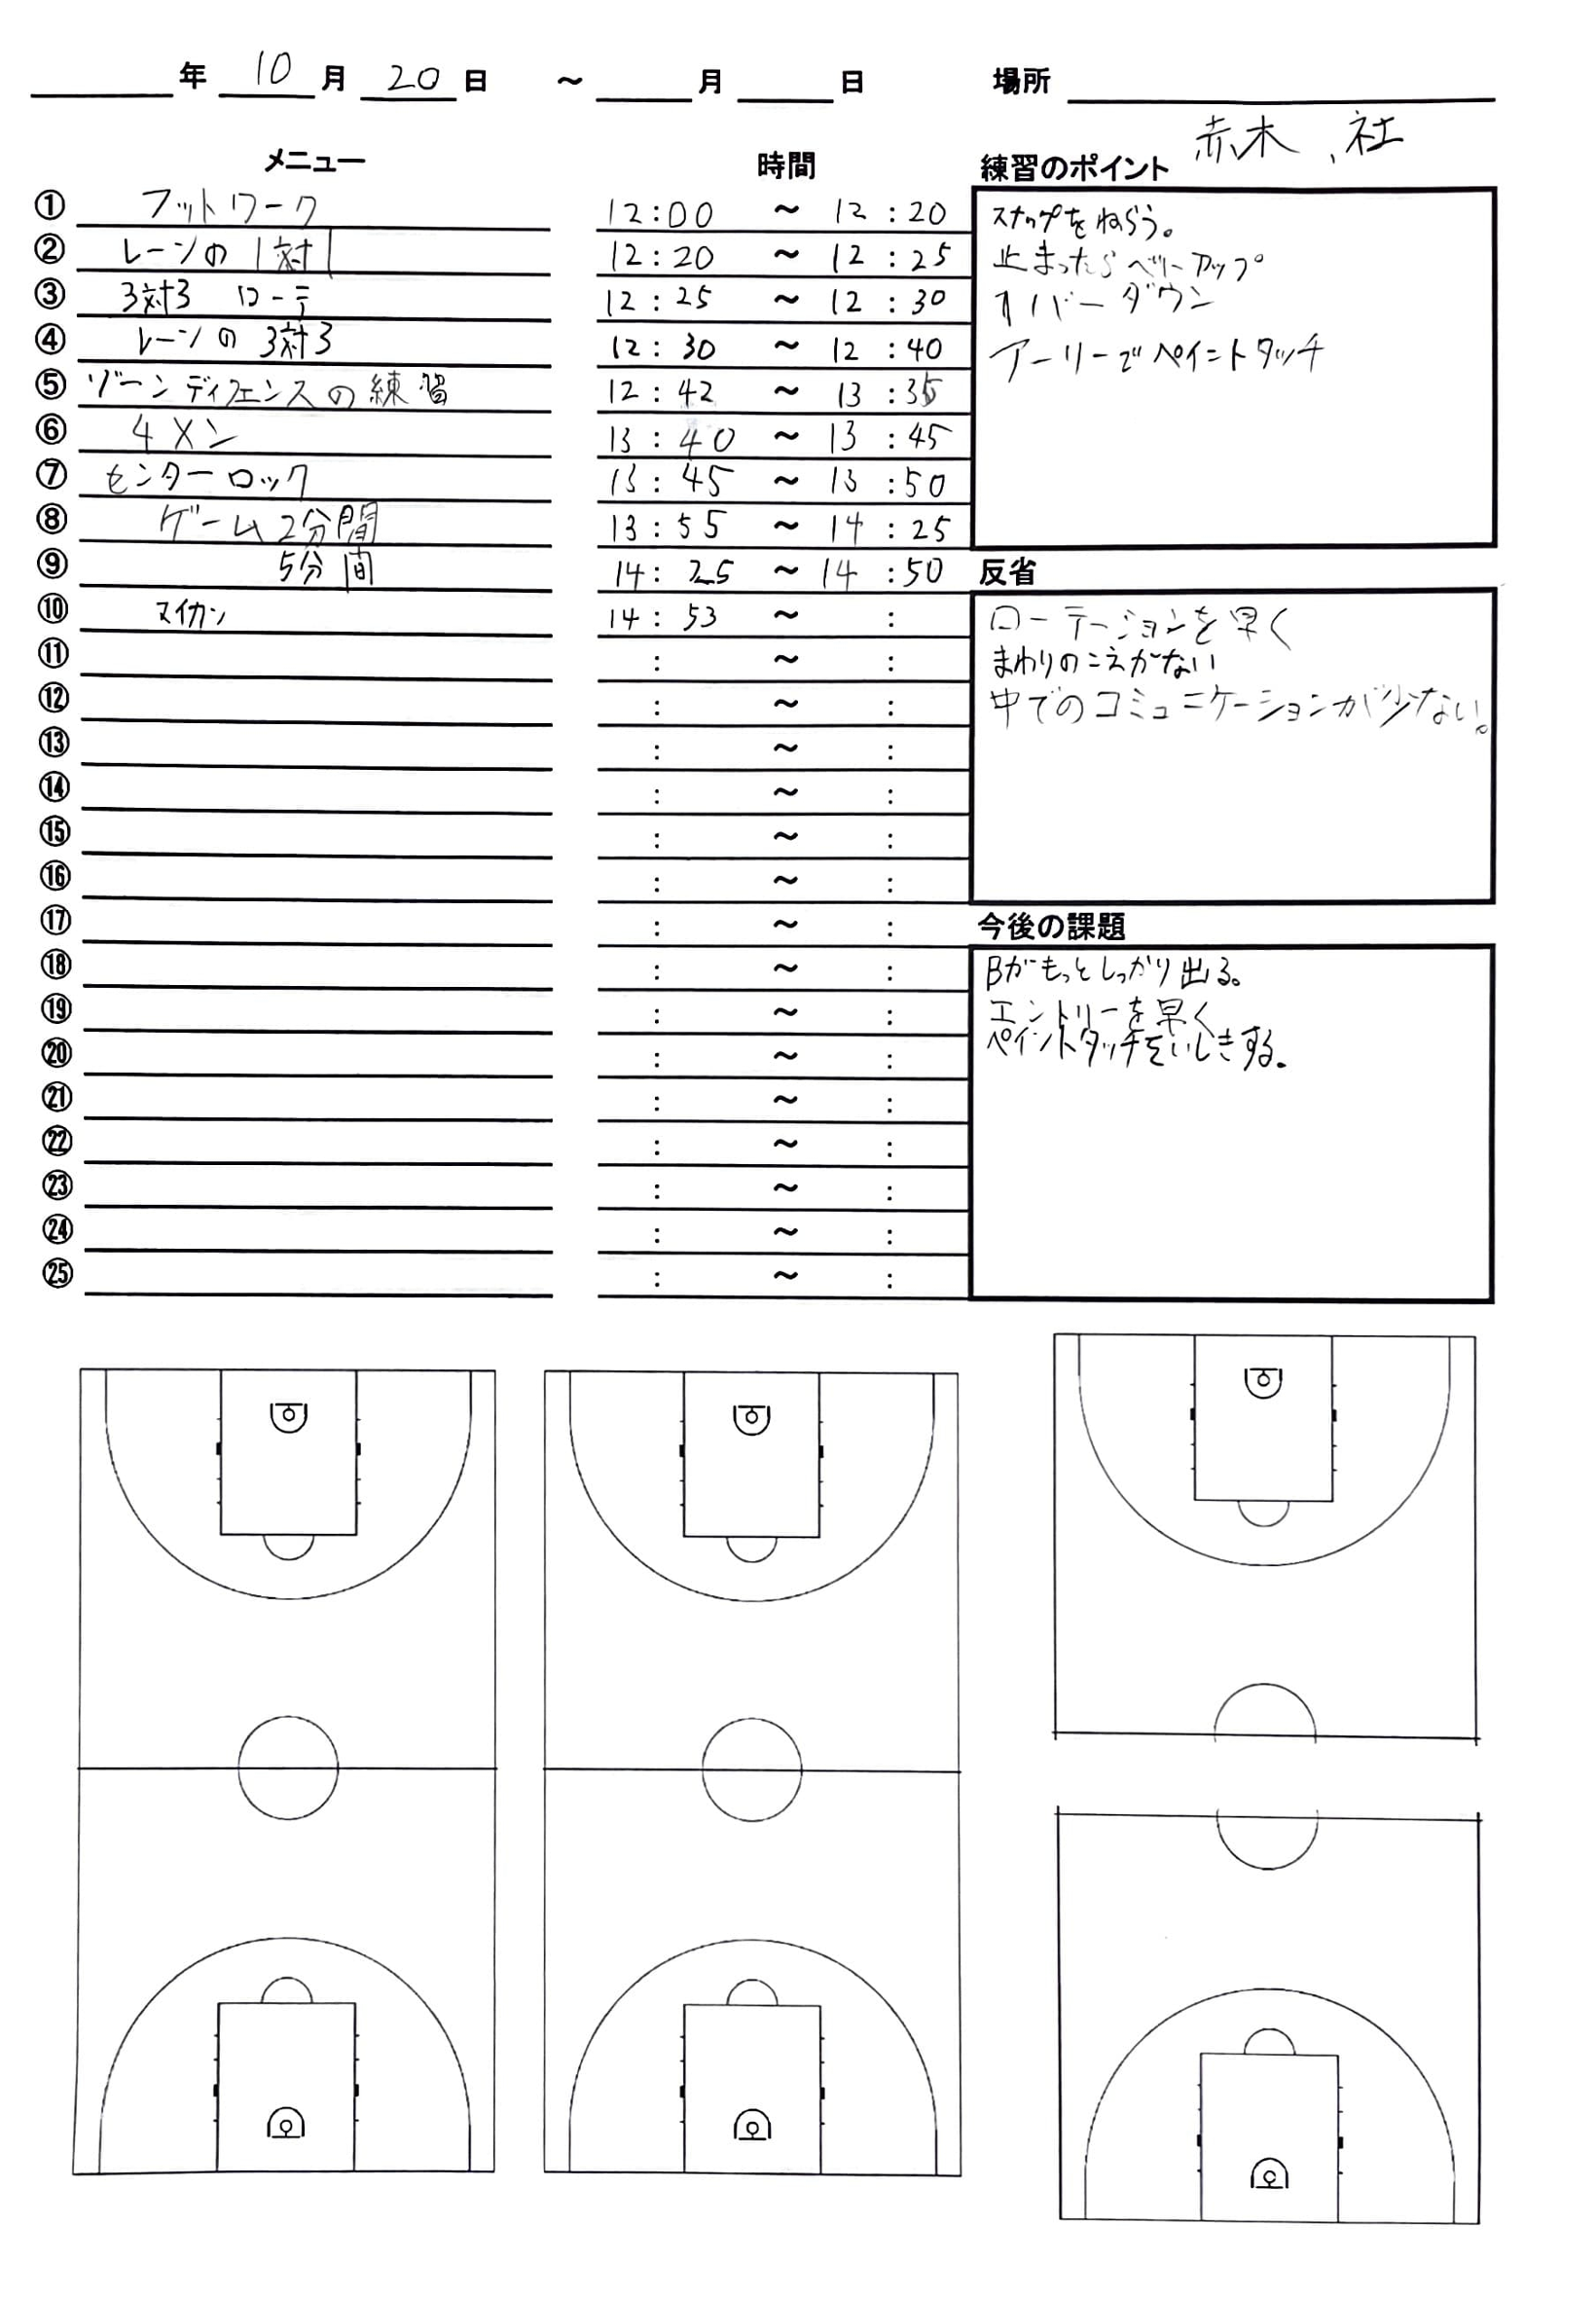 年 10 月 20 日 ～ 月 日 場所
赤木、社
メニュー 時間 練習のポイント
① フットワーク 12:00 ～ 12:20
② レーンの1対1 12:20 ～ 12:25
③ 3対3 ローテ 12:25 ～ 12:30
④ レーンの3対3 12:30 ～ 12:40
⑤ ゾーンディフェンスの練習 12:42 ～ 13:35
⑥ 4メン 13:40 ～ 13:45
⑦ センターロック 13:45 ～ 13:50
⑧ ゲーム2分間 13:55 ～ 14:25
⑨ 5分間 14:25 ～ 14:50
⑩ マイカン 14:53 ～ :
⑪ : ～ :
⑫ : ～ :
⑬ : ～ :
⑭ : ～ :
⑮ : ～ :
⑯ : ～ :
⑰ : ～ :
⑱ : ～ :
⑲ : ～ :
⑳ : ～ :
㉑ : ～ :
㉒ : ～ :
㉓ : ～ :
㉔ : ～ :
㉕ : ～ :
スナップをねらう。
止まったらベリーアップ
オーバーダウン
アーリーでペイントタッチ
反省
ローテーションを早く
まわりのこえがない
中でのコミュニケーションが少ない。
今後の課題
Bがもっとしっかり出る。
エントリーを早く
ペイントタッチをいしきする。